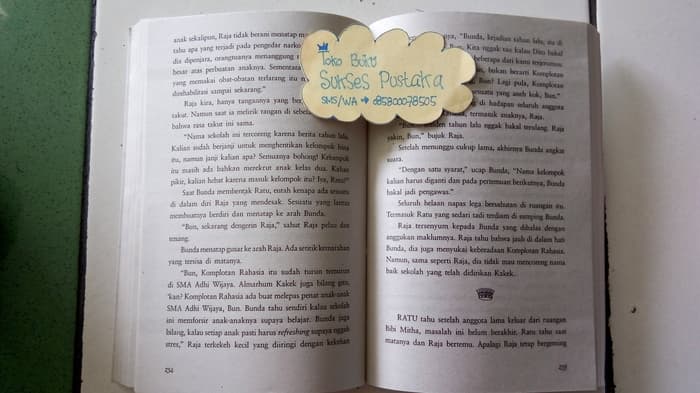 anak sekalipun, Raja tidak berani menatap
tahu apa yang terjadi pada pengedar
dia dipenjara, orangtuanya menanggung
besar atas perbuatan anaknya. Sementara
yang memakai obat-obatan terlarang itu
direhabilitasi sampai sekarang."
Raja kira, hanya tangannya yang
takut. Namun saat ia melirik tangan di
bahwa rasa takut ini sama.
"Nama sekolah ini tercoreng karena berita tahun lalu.
Kalian sudah berjanji untuk menghentikan kelompok bisa
itu, namun janji kalian apa? Semuanya bohong! Kelompok
itu masih ada bahkan merekrut anak kelas dua. Kalian
pikir, kalian hebat karena masuk kelompok itu? Iya,
Saat Bunda membentak Ratu, entah kenapa ada sesuatu
di dalam diri Raja yang mendesak. Sesuatu yang lantas
membuatnya berdiri dan menatap ke arah Bunda.
"Bun, sekarang dengerin Raja," sahut Raja pelan dan
tenang.
Bunda menatap gusar ke arah Raja. Ada setitik kemarahan
yang tersisa di matanya.
"Bun, Komplotan Rahasia itu sudah turun temurun
di SMA Adhi Wijaya. Almarhum Kakek juga bilang gitu,
'kan? Komplotan Rahasia ada buat melepas penat anak-anak
SMA Adhi Wijaya, Bun. Bunda tahu sendiri kalau sekolah
ini memforsir anak-anaknya supaya belajar. Bunda juga
bilang, kalau setiap anak pasti harus refreshing supaya nggak
stres," Raja terkekeh kecil yang diiringi dengan kekehan
234
Toko Buku
Sukses Pustaka
SMS/WA → 085800078505
"Bunda, kejadian tahun lalu, itu di
Bun. Kita nggak tau kalau Dito bakal
beberapa dari kami terjerumus.
bukan berarti Komplotan
Bun? Lagi pula, Komplotan
sesuatu yang aneh kok, Bun."
di hadapan seluruh anggota
termasuk anaknya, Raja.
tahun lalu nggak bakal terulang. Raja
yakin, Bun," bujuk Raja.
Setelah menunggu cukup lama, akhirnya Bunda angkat
suara.
"Dengan satu syarat," ucap Bunda, "Nama kelompok
kalian harus diganti dan pada pertemuan berikutnya, Bunda
bakal jadi pengawas."
Seluruh helaan napas lega bersahutan di ruangan itu.
Termasuk Ratu yang sedari tadi terdiam di samping Bunda.
Raja tersenyum kepada Bunda yang dibalas dengan
anggukan maklumnya. Raja tahu bahwa jauh di dalam hati
Bunda, dia juga menyukai keberadaan Komplotan Rahasia.
Namun, sama seperti Raja, dia tidak mau mencoreng nama
baik sekolah yang telah didirikan Kakek.
RATU tahu setelah anggota lama keluar dari ruangan
Bibi Mitha, masalah ini belum berakhir. Ratu tahu saat
matanya dan Raja bertemu. Apalagi Raja tetap bergeming
235